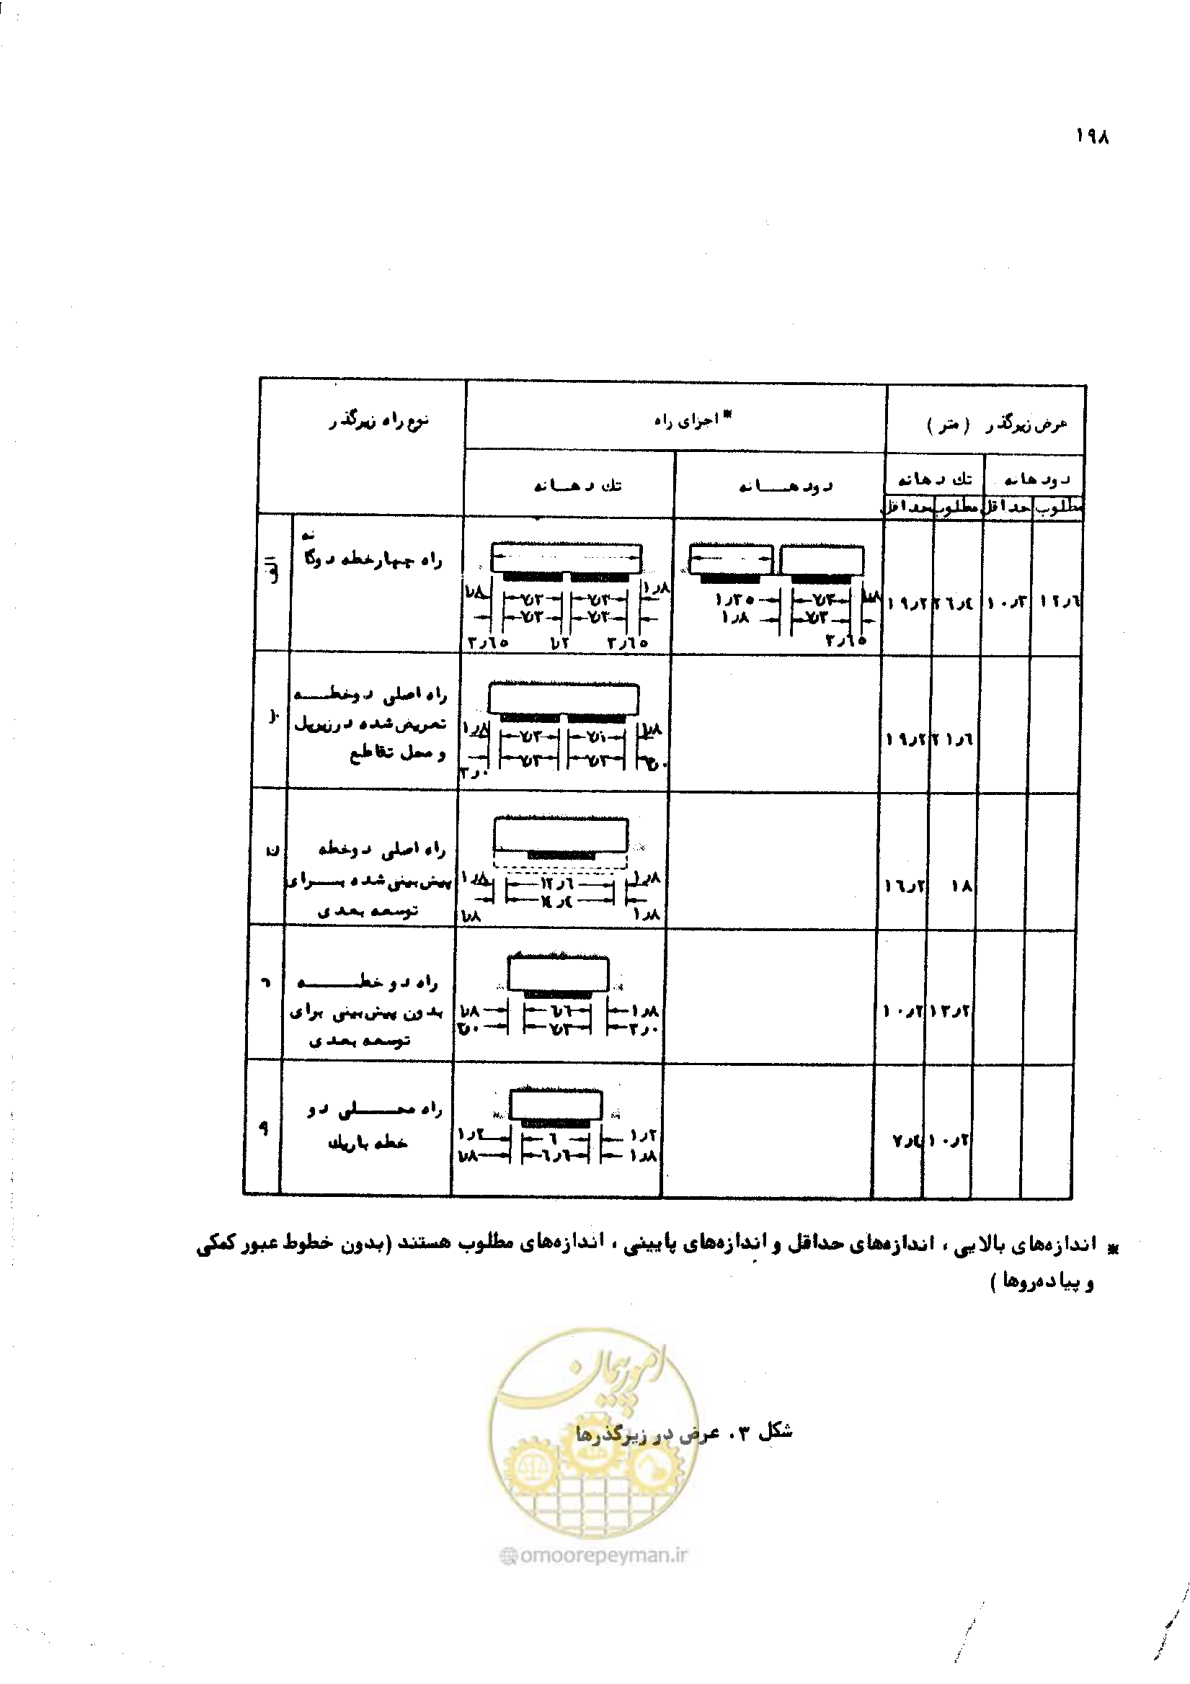 ۱۹۸
نوع راه زیرگذر
* اجزای راه
عرض زیرگذر (متر)
تک دهانه
دودهانه
تک دهانه
دودهانه
حداقل مطلوب حداقل مطلوب
الف
راه چهارخطه دوگانه
۱٫۸ ۷٫۳ ۷٫۳ ۱٫۸
۷٫۳ ۷٫۳
۳٫۶۵ ۱٫۲ ۳٫۶۵
۱٫۳۵ ۷٫۳ ۱٫۸
۱٫۸ ۷٫۳
۳٫۶۵
۱۹٫۲ ۲۶٫۴ ۱۰٫۳ ۱۲٫۶
ب
راه اصلی دوخطه
تعریض شده درزیرپل
و محل تقاطع
۱٫۸ ۷٫۳ ۷٫۱ ۱٫۸
۷٫۳ ۷٫۳
۳٫۰ ۳٫۰
۱۹٫۲ ۲۱٫۶
راه اصلی دوخطه
پیش‌بینی شده برای
توسعه بعدی
۱٫۸ ۱۲٫۶ ۱٫۸
۱۴٫۴
۱٫۸ ۱٫۸
۱۶٫۲ ۱۸
راه دو خطه
بدون پیش‌بینی برای
توسعه بعدی
۱٫۸ ۶٫۶ ۱٫۸
۳٫۰ ۷٫۳ ۳٫۰
۱۰٫۲ ۱۳٫۲
راه محلی دو
خطه باریک
۱٫۲ ۶ ۱٫۲
۱٫۸ ۶٫۶ ۱٫۸
۷٫٤ ۱۰٫۲
* اندازه‌های بالایی، اندازه‌های حداقل و اندازه‌های پایینی، اندازه‌های مطلوب هستند (بدون خطوط عبور کمکی
و پیاده‌روها)
امور پیمان
شکل ۳. عرض در زیرگذرها
@omoorepeyman.ir